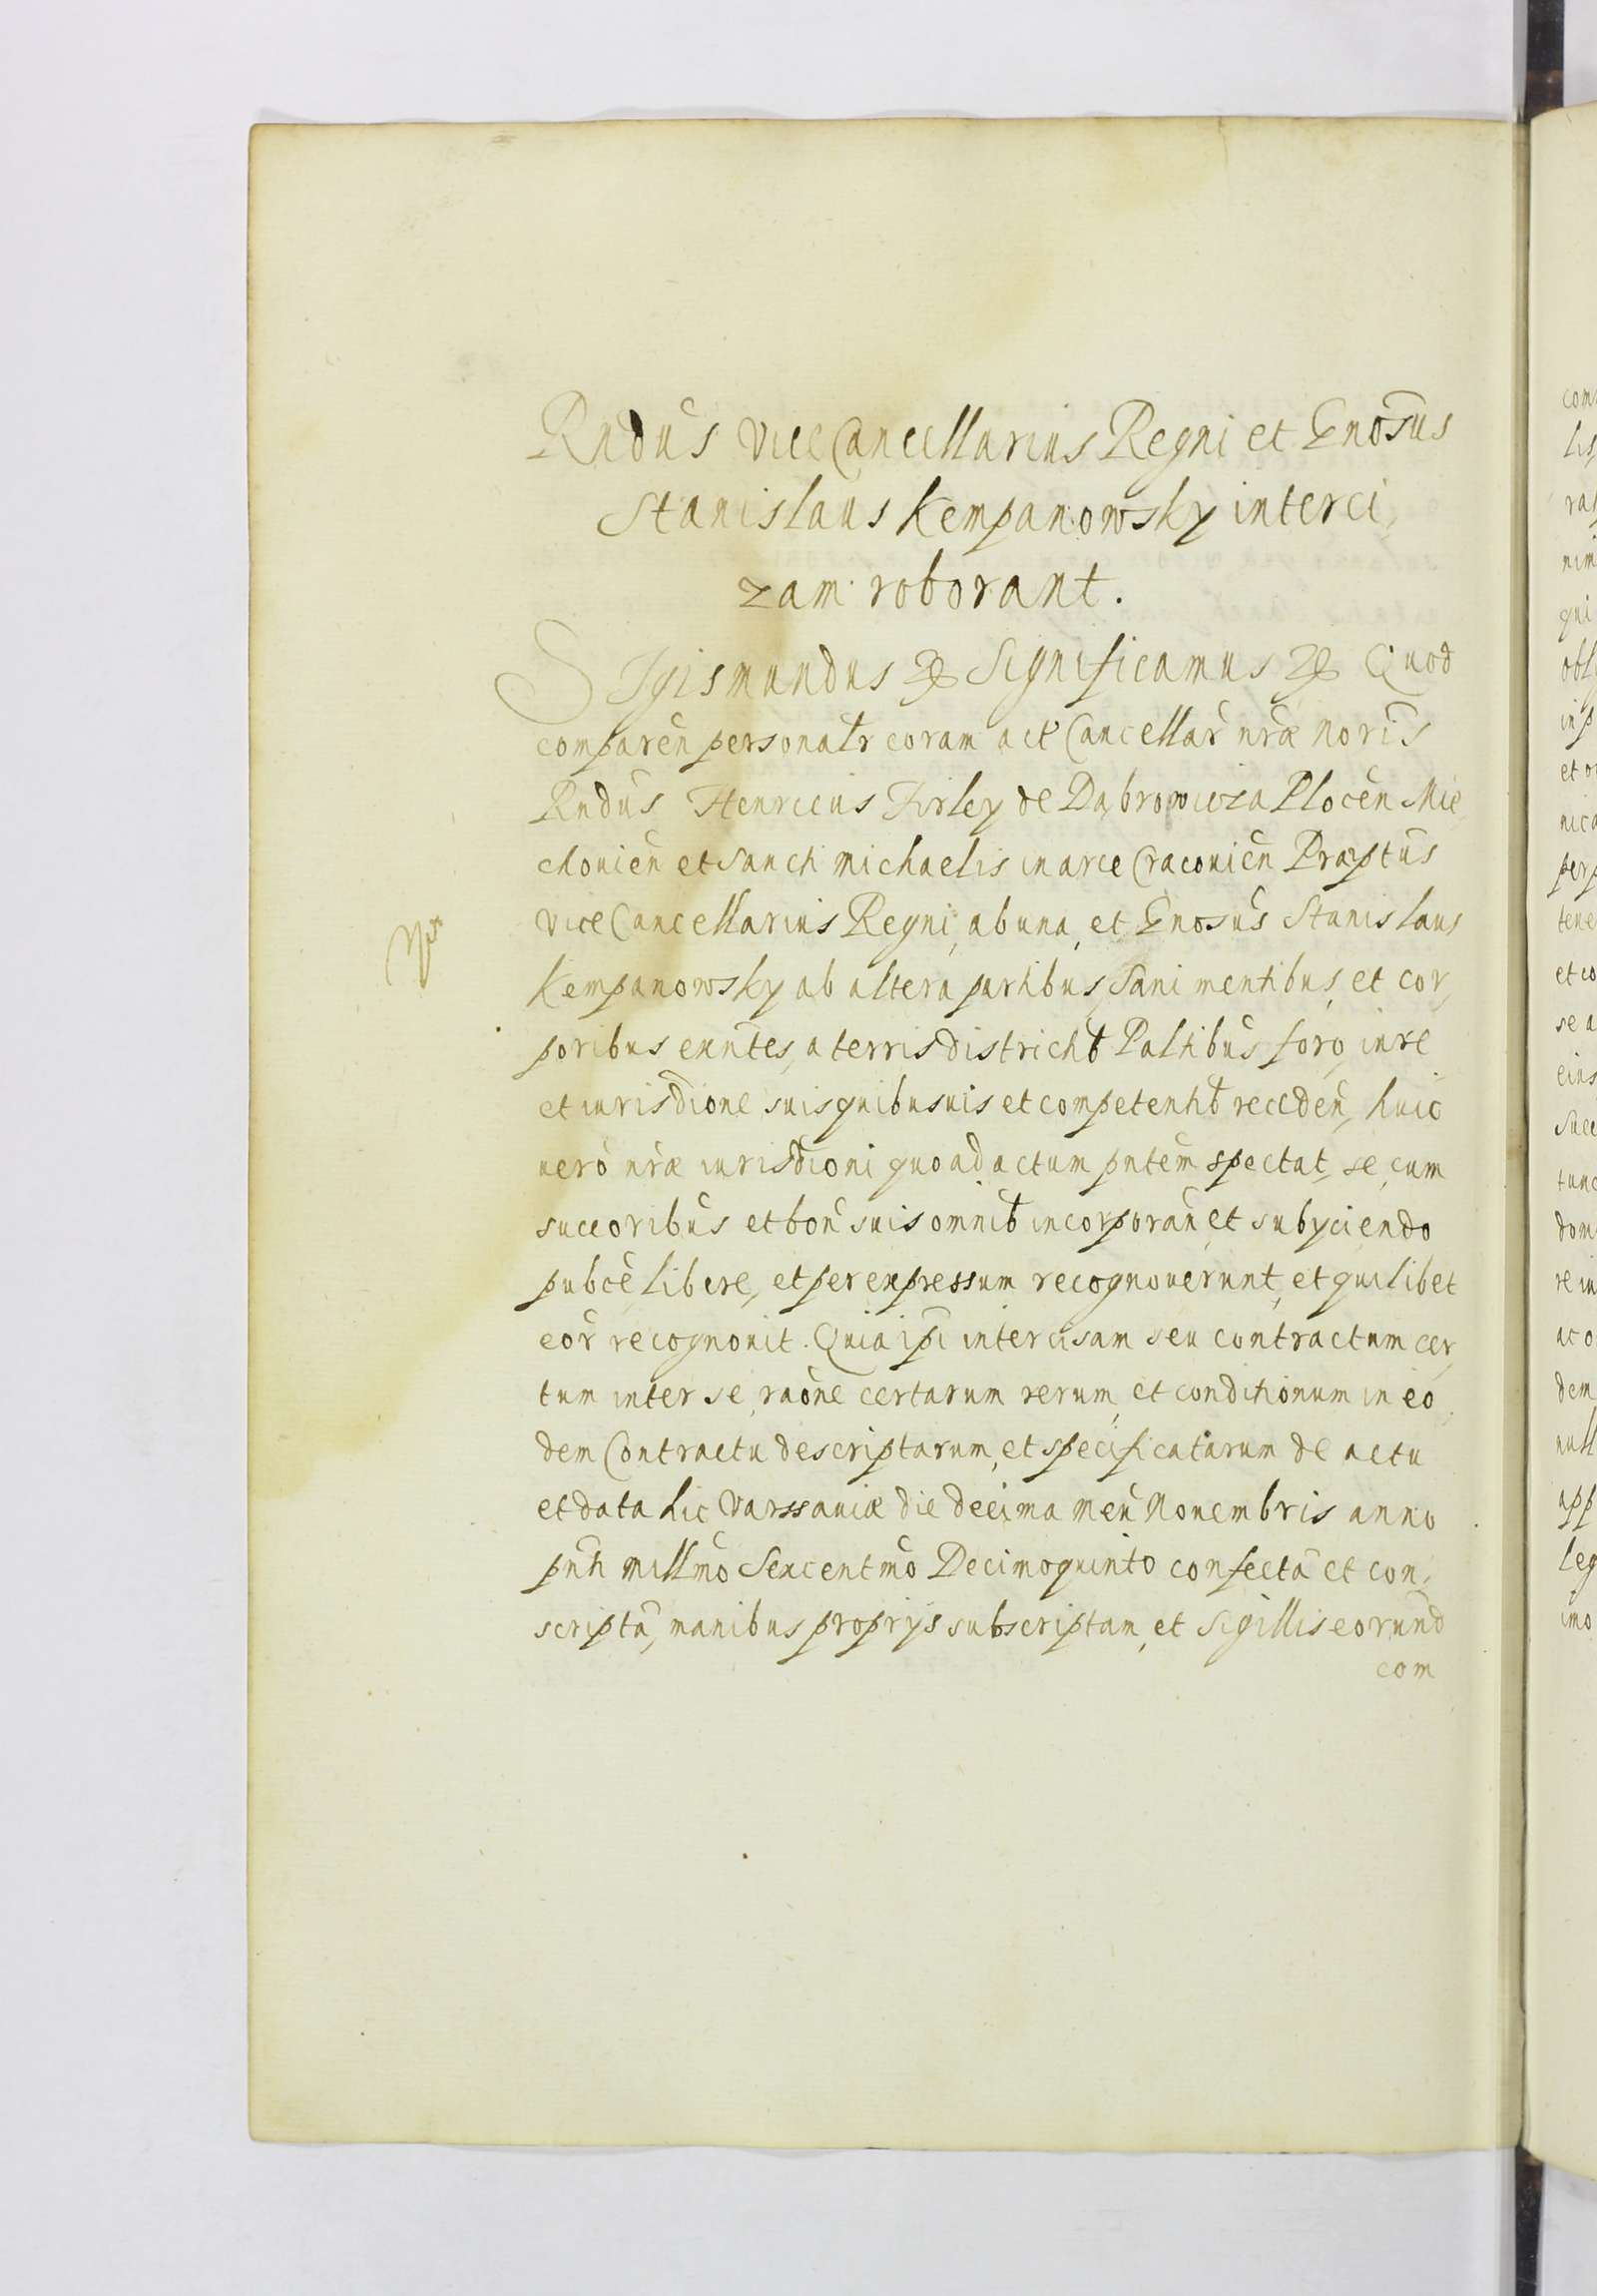 Rndūs ViceCancellarius Regni et Gnōsus
Stanislaus Kempanowsky interci
zam roborant.
Sigismundus &c Significamus &c Quod
comparēn personalr coram act Cancellar nrae Noris
Rndūs Henricus Firley de Dąbrowicza Plocēn Mie
chouiēn et Sancti Michaelis in arce Cracouiēn Praeptūs
ViceCancellarius Regni, ab una, et Gnosūs Stanislaus
Kempanowsky ab altera partibus, Sani mentibus, et cor,
poribus exntes, a terris districtib Paltibūs foro, iure
et iurisdione suis quibusuis et competentib recedēn, huic
uero nrae iurisdioni quo ad actum pntem spectat, se, cum
succoribūs et bon suis omnib incorporan, et subyciendo
pubce, libere, et per expressum recognouerunt, et quilibet
eor recognouit. Quia ipi intercisam seu contractum cer,
tum inter se, raōne certarum rerum, et conditionum in eo
dem Contractu descriptarum, et specificatarum de actu
et data hic Varssauiae die decima Men Nouembris anno
pnti Millmo Sexcentmo Decimoquinto confectā et con,
scriptā, manibus proprijs subscriptam, et Sigillis eorund
com